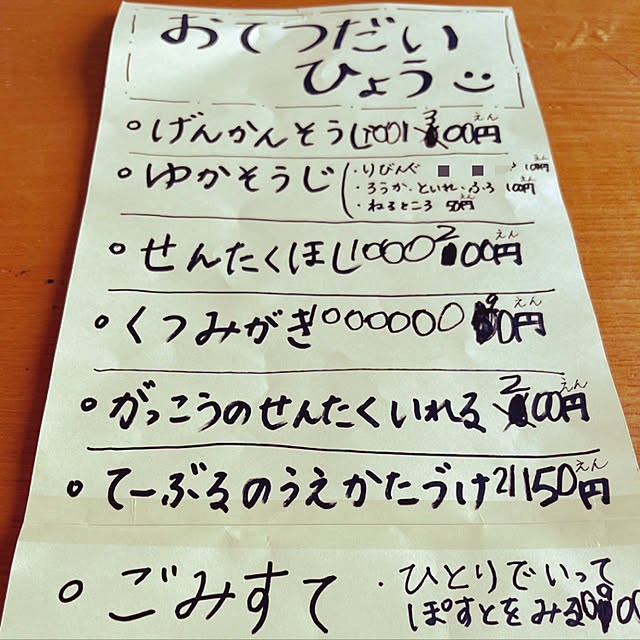 おてつだい
ひょう
げんかんそうじ 300円 えん
ゆかそうじ
・りびんぐ えん
・ろうか、といれ、ふろ 100円 えん
・ねるところ 50円 えん
せんたくほし 200円 えん
くつみがき 90円 えん
がっこうのせんたくいれる 200円 えん
てーぶるのうえかたづけ 50円 えん
ごみすて ・ひとりでいって
ぽすとをみる